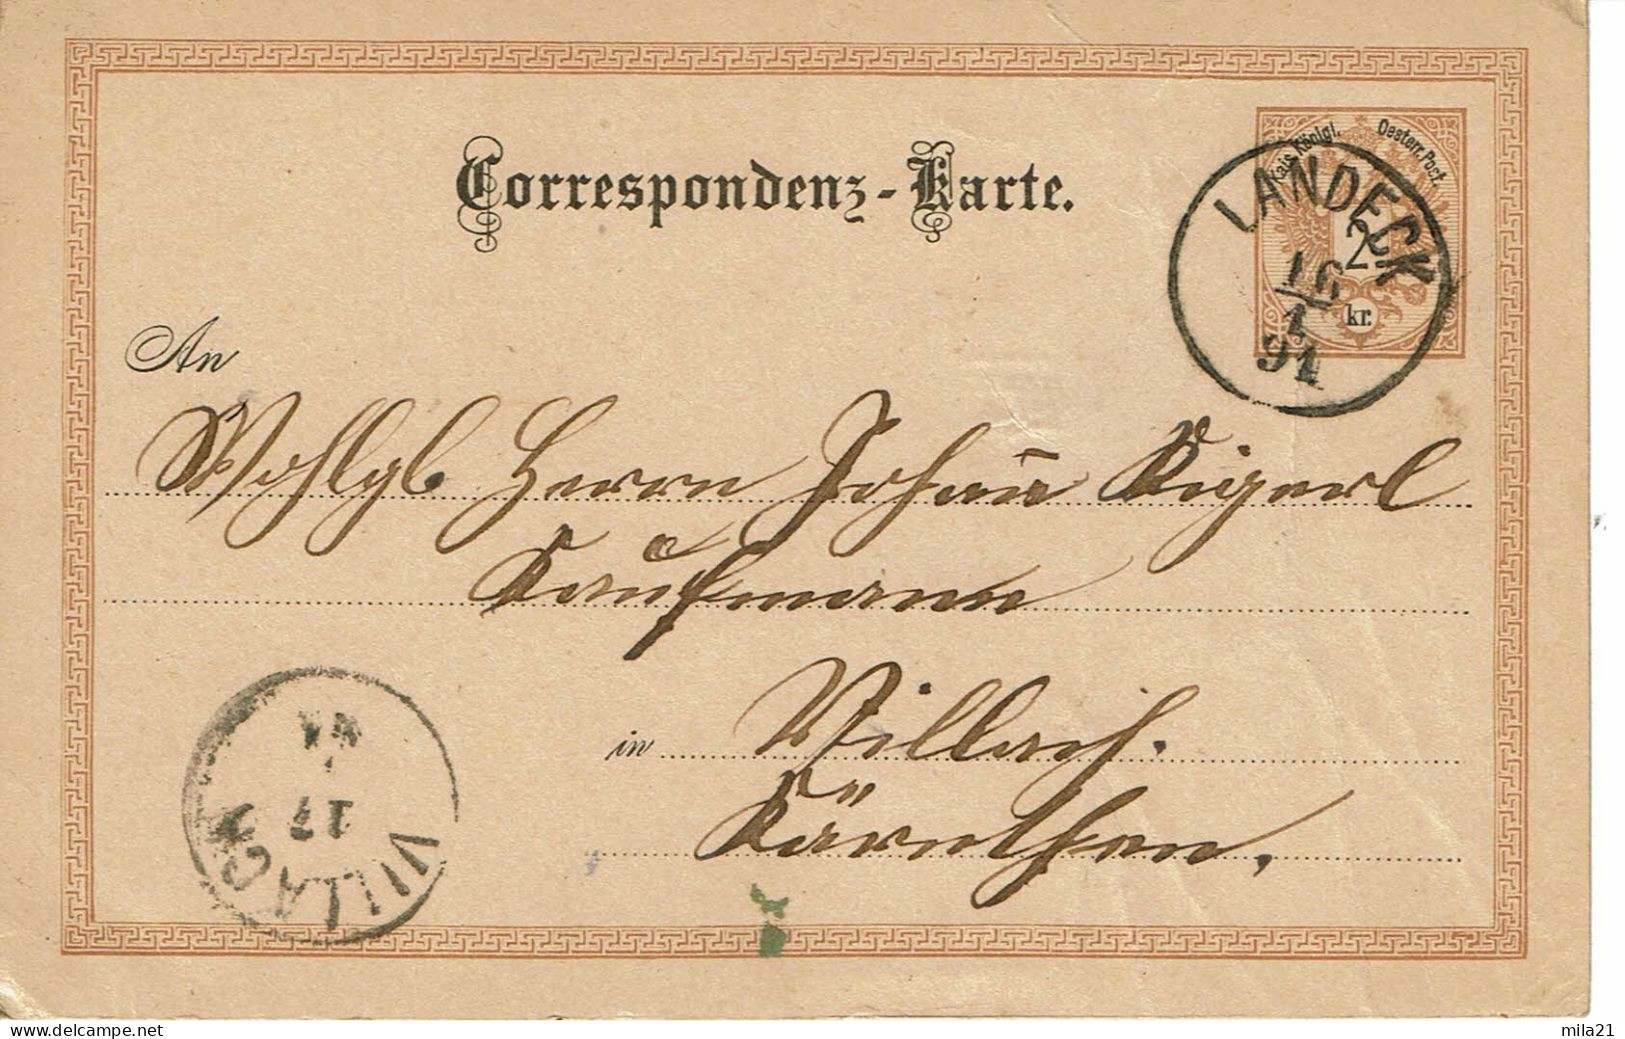 Correspondenz-Karte.
Kais. Königl. Oesterr. Post.
2
kr.
LANDECK
16
1
91
An
Wohlgb Herrn Johañ Rigerl
Kaufmann
in Villach.
Kärnthen.
VILLACH
17
1
www.delcampe.net
mila21